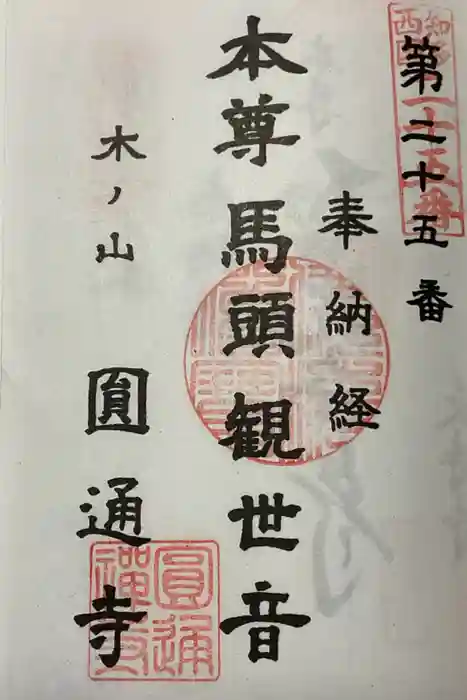 第二十五番
奉納経
本尊馬頭観世音
木ノ山 圓通寺
知多
西国
二十五番
圓通
禅寺